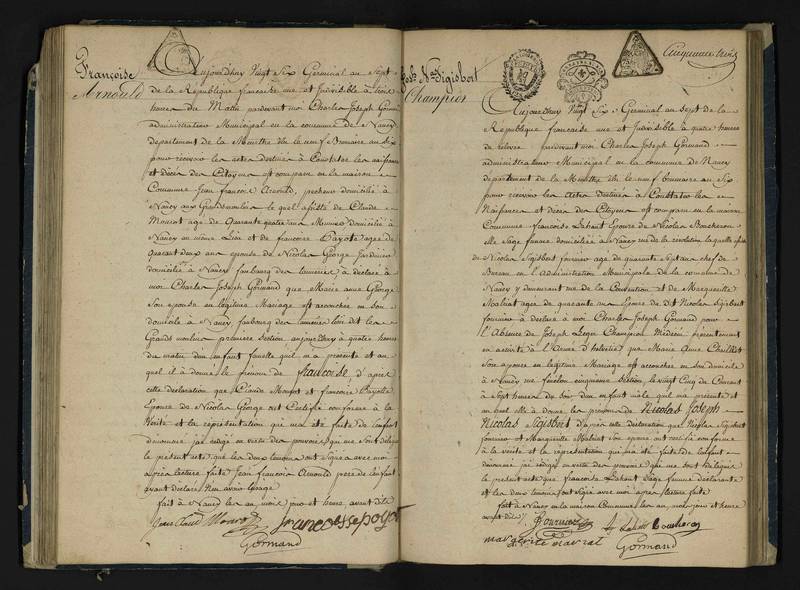 Françoise
Arnould
Aujourdhuy Vingt Six Germinal an Sept
de la République francaise une et Indivisible à
heures Du Matin pardevant moi Charles Joseph Gormand
administrateur Municipal en la commune de Nancy
departement de la Meurthe élu le neuf Brumaire an six
pour recevoir les actes destinés à Constater les naissances
et décès des Citoyens est comparu en la maison
Commune Jean francois Arnould, domicilié à
Nancy aux Grands moulins le quel assisté de Claude
agé de Quarante quatre ans domicilié à
Nancy et de francoise Bayote agée de
quarante deux ans epouse de Nicolas George Jardinier
domicilié à Nancy faubourg à déclaré à
moi Charles Joseph Gormand que Marie anne George
Son épouse en légitime Mariage est accouchée en son
domicile à Nancy faubourg lieu dit les
Grands moulins premiere Section aujourdhuy à quatre heures
du matin d'un enfant femelle qu'il m'a présenté et au
quel il a donné le prenom de francoise d'après
cette déclaration que Claude et francoise Bayotte
Epouse de Nicolas George ont Certifié conforme à la
Vérité et la représentation qui m'a été faite de l'enfant
dénommé j'ai rédigé en vertu des pouvoirs qui me sont délégués
le présent acte que les deux temoins ont Signé avec moi
après lecture faite Jean francois Arnould pere de l'enfant
ayant déclaré
fait à Nancy les an mois jour et heure avant dits
francoesse
Gormand
Josh. Nas. Sigisbert
Champion
Cinquante trois
Aujourdhuy Vingt Six Germinal an sept de la
République francaise une et Indivisible à quatre heures
de relevée pardevant moi Charles Joseph Gormand
administrateur Municipal en la commune de Nancy
departement de la Meurthe élu le neuf brumaire an Six
pour recevoir les Actes Destinés à Constater les
Naissances et décès des Citoyens est comparu en la maison
Commune francoise Lahaut Epouse de Nicolas
elle Sage femme domiciliée à Nancy rue de la revolution la quelle assistée
de Nicolas Sigisbert fournier agé de quarante Sept ans chef de
Bureau en l'Administration Municipale de la commune de
Nancy y demeurant rue de la Convention et de Marguerite
agée de quarante ans Epouse du dit Nicolas Sigisbert
fournier à déclaré à moi Charles Joseph Gormand pour
l'Absence de Joseph Leger Champion Médecin présentement
en activité à l'Armée d'helvetie que Marie Anne
Son épouse en légitime Mariage est accouchée en son domicile
à Nancy cinquieme Section le vingt Cinq du Courant
à Sept heures du Soir d'un Enfant mâle qu'elle m'a présenté et
au quel elle a donné les prenoms de Nicolas Joseph
Nicolas Sigisbert d'après cette déclaration que Nicolas Sigisbert
fournier et Marguerite son épouse ont certifié conforme
à la vérité et la représentation qui m'a été faite de l'enfant
dénommé j'ai rédigé en vertu des pouvoirs qui me sont délégués
le présent acte que francoise Lahaut Sage femme déclarante
et les deux temoins ont Signé avec moi après lecture faite
fait à Nancy en la maison commune les an, mois, jour et heure
avant dits
fournier
marguerite
Gormand